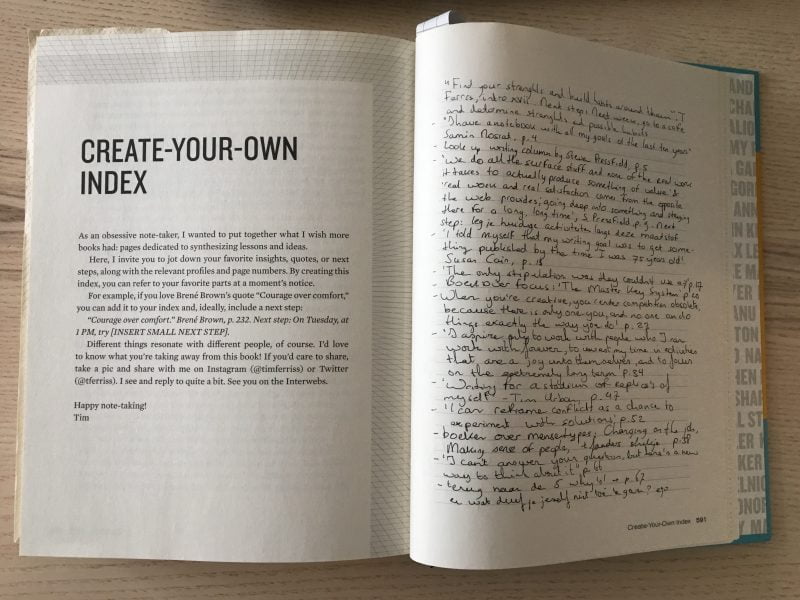 CREATE-YOUR-OWN
INDEX
As an obsessive note-taker, I wanted to put together what I wish more
books had: pages dedicated to synthesizing lessons and ideas.
Here, I invite you to jot down your favorite insights, quotes, or next
steps, along with the relevant profiles and page numbers. By creating this
index, you can refer to your favorite parts at a moment's notice.
For example, if you love Brené Brown's quote “Courage over comfort,”
you can add it to your index and, ideally, include a next step:
“Courage over comfort.” Brené Brown, p. 232. Next step: On Tuesday, at
1 PM, try [INSERT SMALL NEXT STEP].
Different things resonate with different people, of course. I'd love
to know what you're taking away from this book! If you'd care to share,
take a pic and share with me on Instagram (@timferriss) or Twitter
(@tferriss). I see and reply to quite a bit. See you on the Interwebs.
Happy note-taking!
Tim
"Find your strenghts and build habits around them." T
Ferriss, intro xvii. Next step: Next week, go to a cafe
and determine strenghts and possible habits
- "I have a notebook with all my goals of the last ten years"
Samin Nosrat, p. 4
- Look up writing column by Steven Pressfield, p. 5
- 'We do all the surface stuff and none of the real work
it takes to actually produce something of value' &
'real work and real satisfaction comes from the opposite
the web provides; going deep into something and staying
there for a long, long time', S. Pressfield, p. 9. Next
step: leg je huidige activiteiten langs deze maatstaf
- 'I told myself that my writing goal was to get some-
thing published by the time I was 75 years old!
Susan Cain, p. 13
- 'The only stipulation was they couldn't use p. 17
- Boek over focus: 'The Master Key System' p. 20
- When you're creative, you center competition obsolete,
because there is only one you, and no one can do
things exactly the way you do! p. 27
- "I aspire only to work with people who I can
work with forever, to invest my time in activities
that are a joy unto themselves, and to focus
on the extremely long term p. 34
- 'Writing for a stadium of replica's of
myself' - Tim Urban, p. 47
- 'I can reframe conflict as a chance to
experiment with solutions', p. 52
- boeken over mensentypes: Changing on the job,
Making sense of people, p. 58
- 'I can't answer your question, but here's a new
way to think about it', p. 60
- terug naar de 5 why's! → p. 67
en wat durf je jezelf niet toe te gaan?
Create-Your-Own Index 591